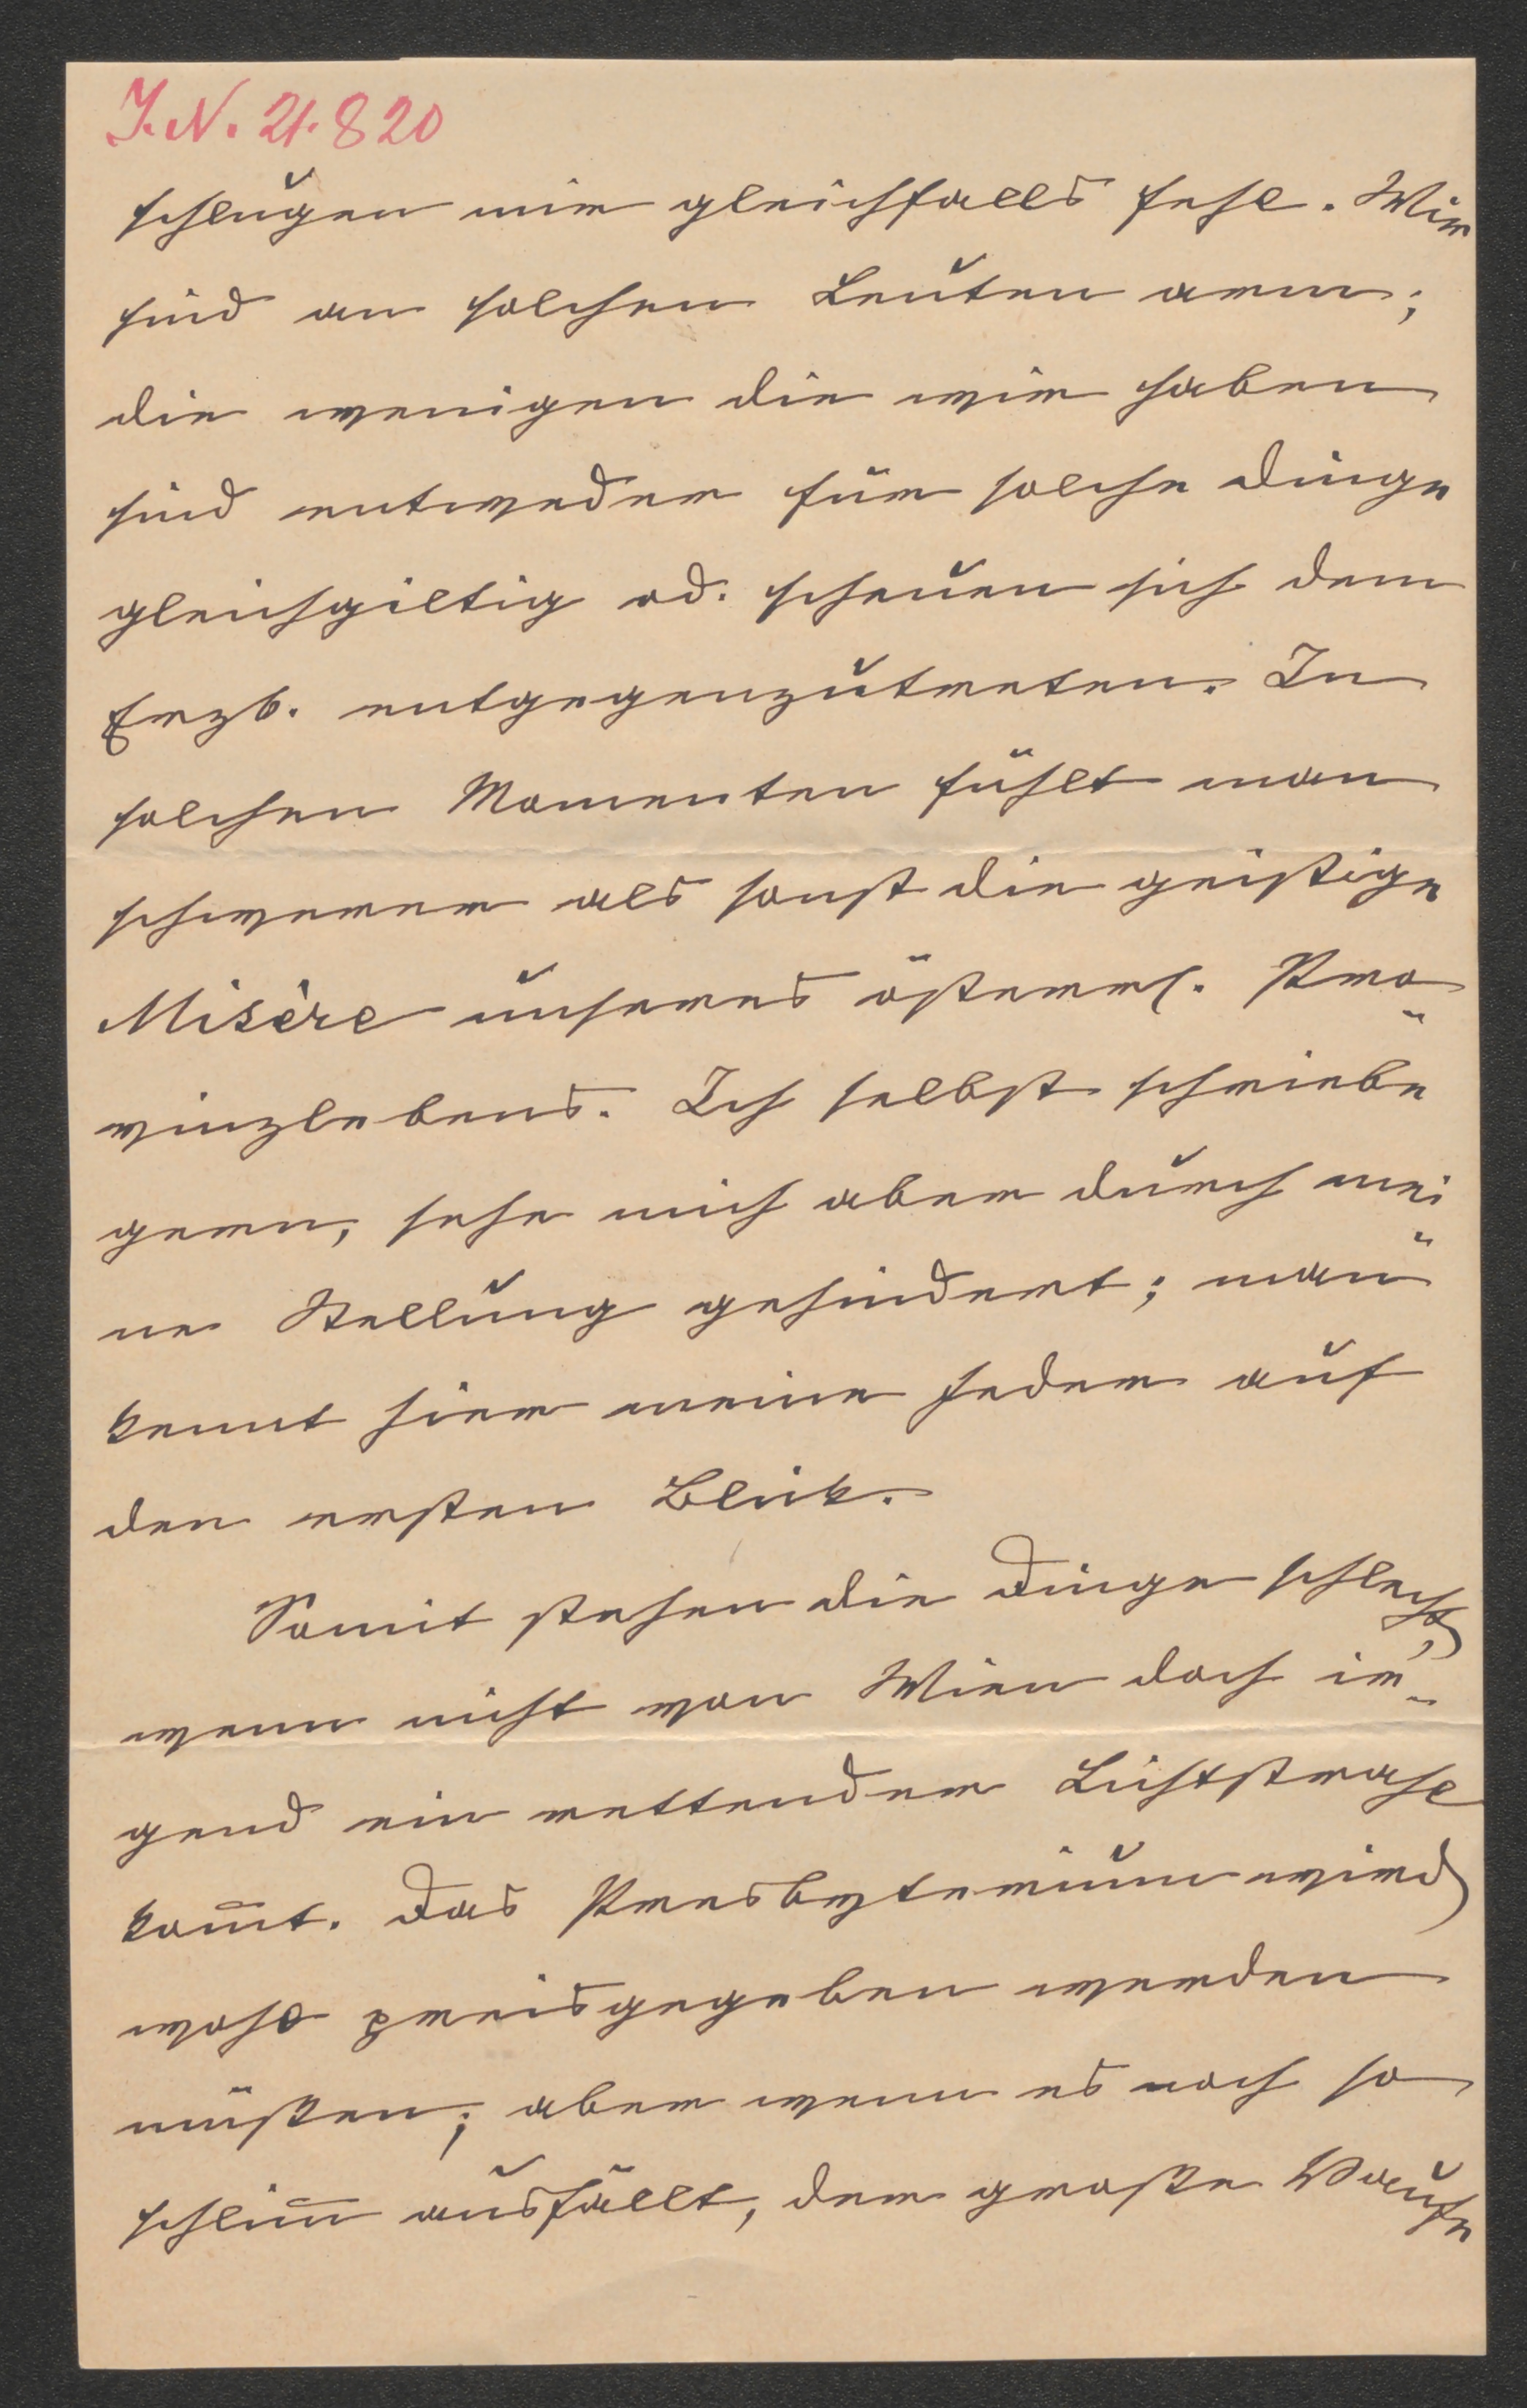 J.N. 21.820
schlugen mir gleichfalls fehl. Wir
sind an solchen Leuten arm;
die wenigen die wir haben
sind entweder für solche Dinge
gleichgiltig od. scheuen sich dem
Erzb. entgegenzutreten. In
solchen Momenten fühlt man
schwerer als sonst die geistige
Misère unseres österrei. Pro-
vinzlebens. Ich selbst schriebe
gern, sehe mich aber durch mei-
ne Stellung gehindert; man
kennt hier meine Feder auf
den ersten Blick.
Somit stehen die Dinge schlecht,
wenn nicht von Wien doch ir-
gend ein rettender Lichtstrahl
kom̄t. Das Presbyterium wird
wohl preisgegeben werden
müßen; aber wenn es noch so
schlim̄ ausfällt, der große